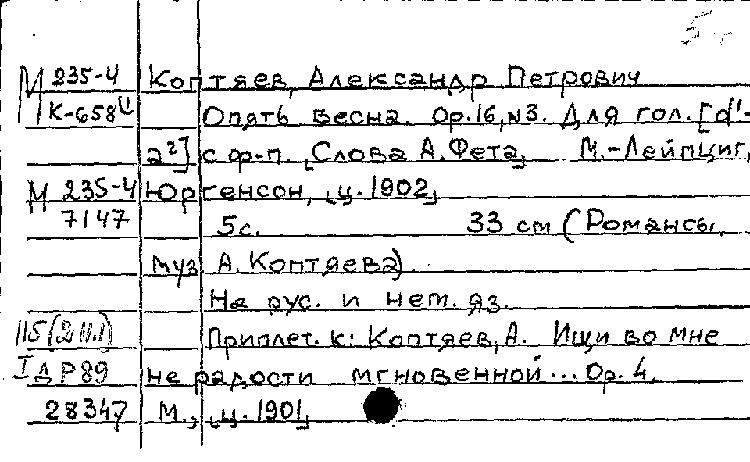 5
М 235-4 Коптяев, Александр Петрович
К-658 Опять весна. Op.16, №3. Для гол. [d¹-
a²] с ф-п. [Слова А. Фета] М.-Лейпциг,
М 235-4 Юргенсон, [ц. 1902]
7147 5 с. 33 см (Романсы
муз А. Коптяева).
На рус. и нем. яз.
Приплет. к: Коптяев, А. Ищи во мне
I д Р89 не радости мгновенной... Op. 4.
28347 М., [ц. 1901]